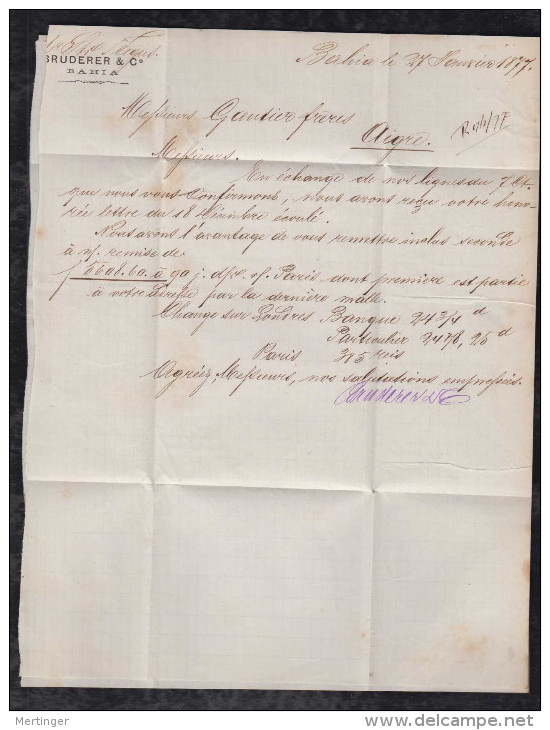 Bahia le 27 Janvier 1877.
BRUDERER & Cº
BAHIA
Messieurs Gautier frères
Aigre.
Messieurs.
En échange de nos lignes du 7 Ct.
que nous vous confirmons, nous avons reçu votre hono-
rée lettre du 18 Décembre écoulé.
Nous avons l'avantage de vous remettre inclus seconde
à n/. remise de
f 5608.60. à 90 j. d/. s/. Paris dont première est partie
à votre adresse par la dernière malle.
Change sur Londres Banque 24 3/4 d
Particulier 24 7/8, 25 d
Paris 385 reis
Agréez, Messieurs, nos salutations empressées.
Bruderer & Co
Mertinger
delcampe.net